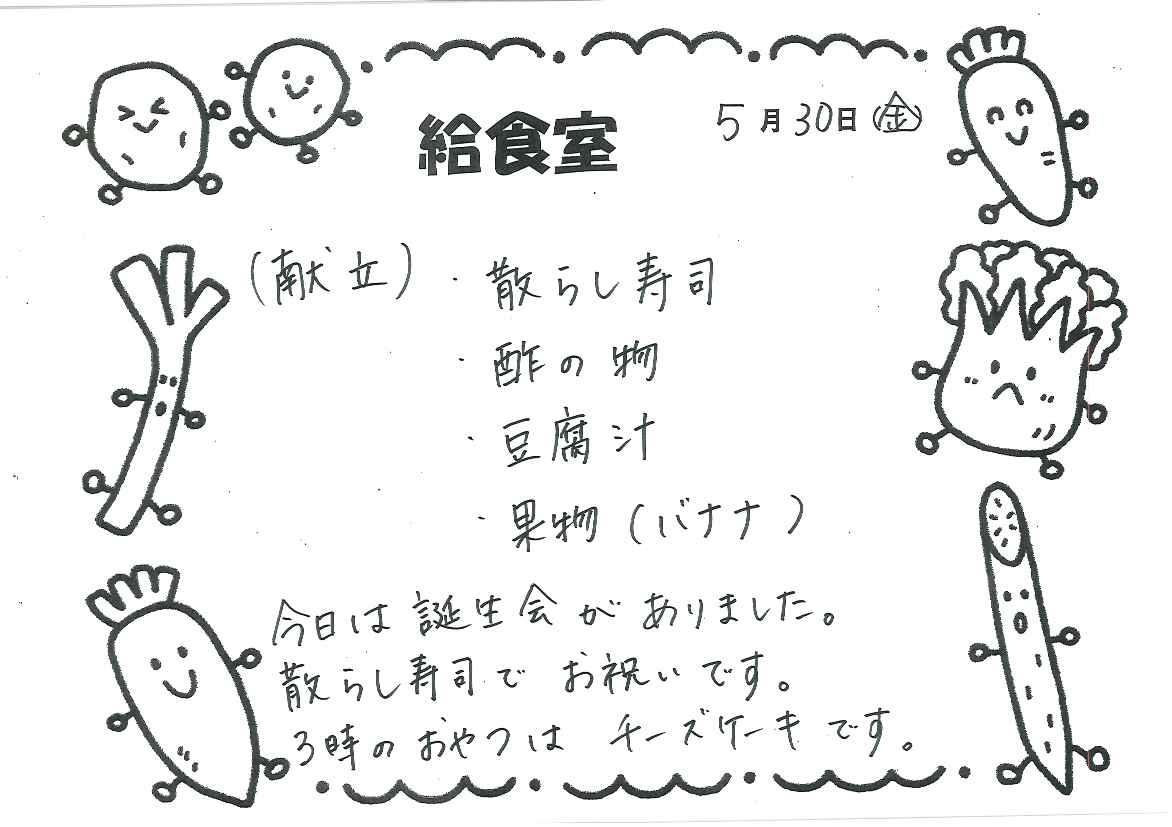 給食室
5月30日(金)
(献立)・散らし寿司
・酢の物
・豆腐汁
・果物(バナナ)
今日は誕生会がありました。
散らし寿司でお祝いです。
3時のおやつはチーズケーキです。